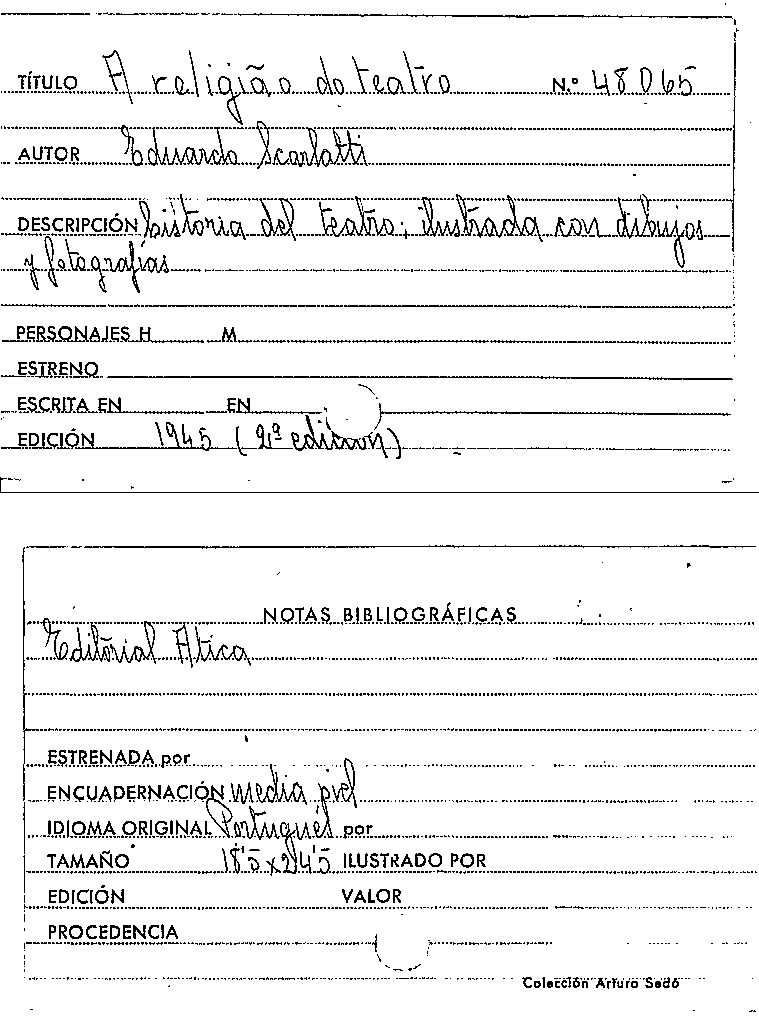 TÍTULO A religião do teatro N.º 48065
AUTOR Eduardo Scarlatti
DESCRIPCIÓN historia del teatro; ilustrada con dibujos
y fotografías
PERSONAJES H M
ESTRENO
ESCRITA EN EN
EDICIÓN 1945 (2ª edición)
NOTAS BIBLIOGRÁFICAS
Editorial Atica
ESTRENADA por
ENCUADERNACIÓN media piel
IDIOMA ORIGINAL Portugués por
TAMAÑO 18'5 x 24'5 ILUSTRADO POR
EDICIÓN VALOR
PROCEDENCIA
Colección Arturo Sedó